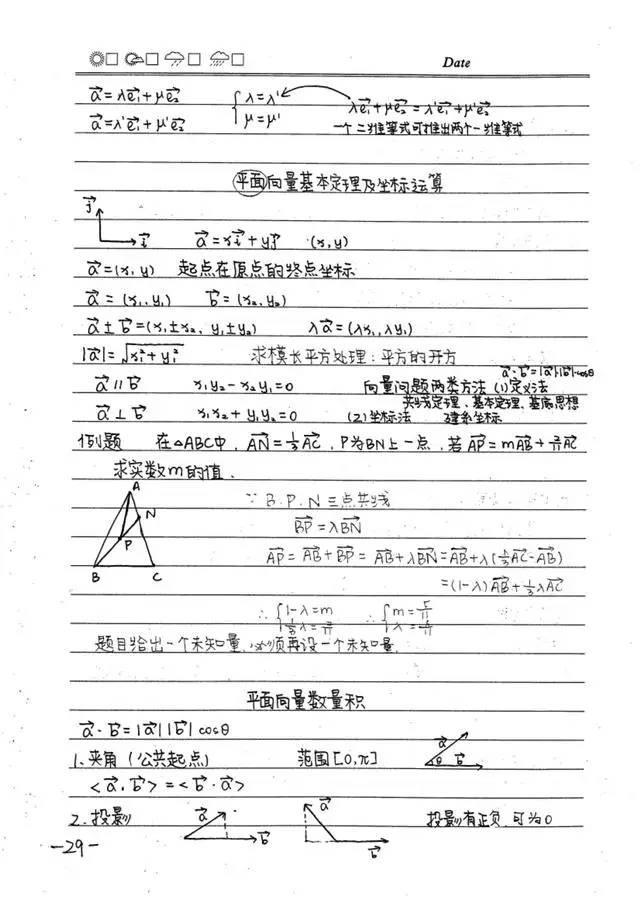 Date
a⃗=λe⃗₁+μe⃗₂ {λ=λ' λe⃗₁+μe⃗₂=λ'e⃗₁+μ'e⃗₂
a⃗=λ'e⃗₁+μ'e⃗₂ μ=μ' 一个二维等式可推出两个一维等式
平面向量基本定理及坐标运算
j⃗
i⃗ a⃗=xi⃗+yj⃗ (x,y)
a⃗=(x,y) 起点在原点的终点坐标
a⃗=(x₁,y₁) b⃗=(x₂,y₂)
a⃗±b⃗=(x₁±x₂,y₁±y₂) λa⃗=(λx₁,λy₁)
|a⃗|=√x₁²+y₁² 求模长平方处理:平方的开方
a⃗·b⃗=|a⃗||b⃗|cosθ
a⃗∥b⃗ x₁y₂-x₂y₁=0 向量问题两类方法 (1)定义法
共线定理、基本定理、基底思想
a⃗⊥b⃗ x₁x₂+y₁y₂=0 (2)坐标法 建系坐标
例题 在△ABC中,AN⃗=⅓AC⃗,P为BN上一点,若AP⃗=mAB⃗+2/11AC⃗
求实数m的值.
A
N
P
B C
∵B.P.N三点共线
BP⃗=λBN⃗
AP⃗=AB⃗+BP⃗=AB⃗+λBN⃗=AB⃗+λ(⅓AC⃗-AB⃗)
=(1-λ)AB⃗+⅓λAC⃗
∴{1-λ=m ∴{m=5/11
⅓λ=2/11 λ=6/11
题目给出一个未知量,必须再设一个未知量.
平面向量数量积
a⃗·b⃗=|a⃗||b⃗|cosθ
1.夹角(公共起点) 范围[0,π] a⃗ θ b⃗
<a⃗,b⃗>=<b⃗·a⃗>
2.投影 a⃗ b⃗ a⃗ b⃗ 投影有正负,可为0
-29-